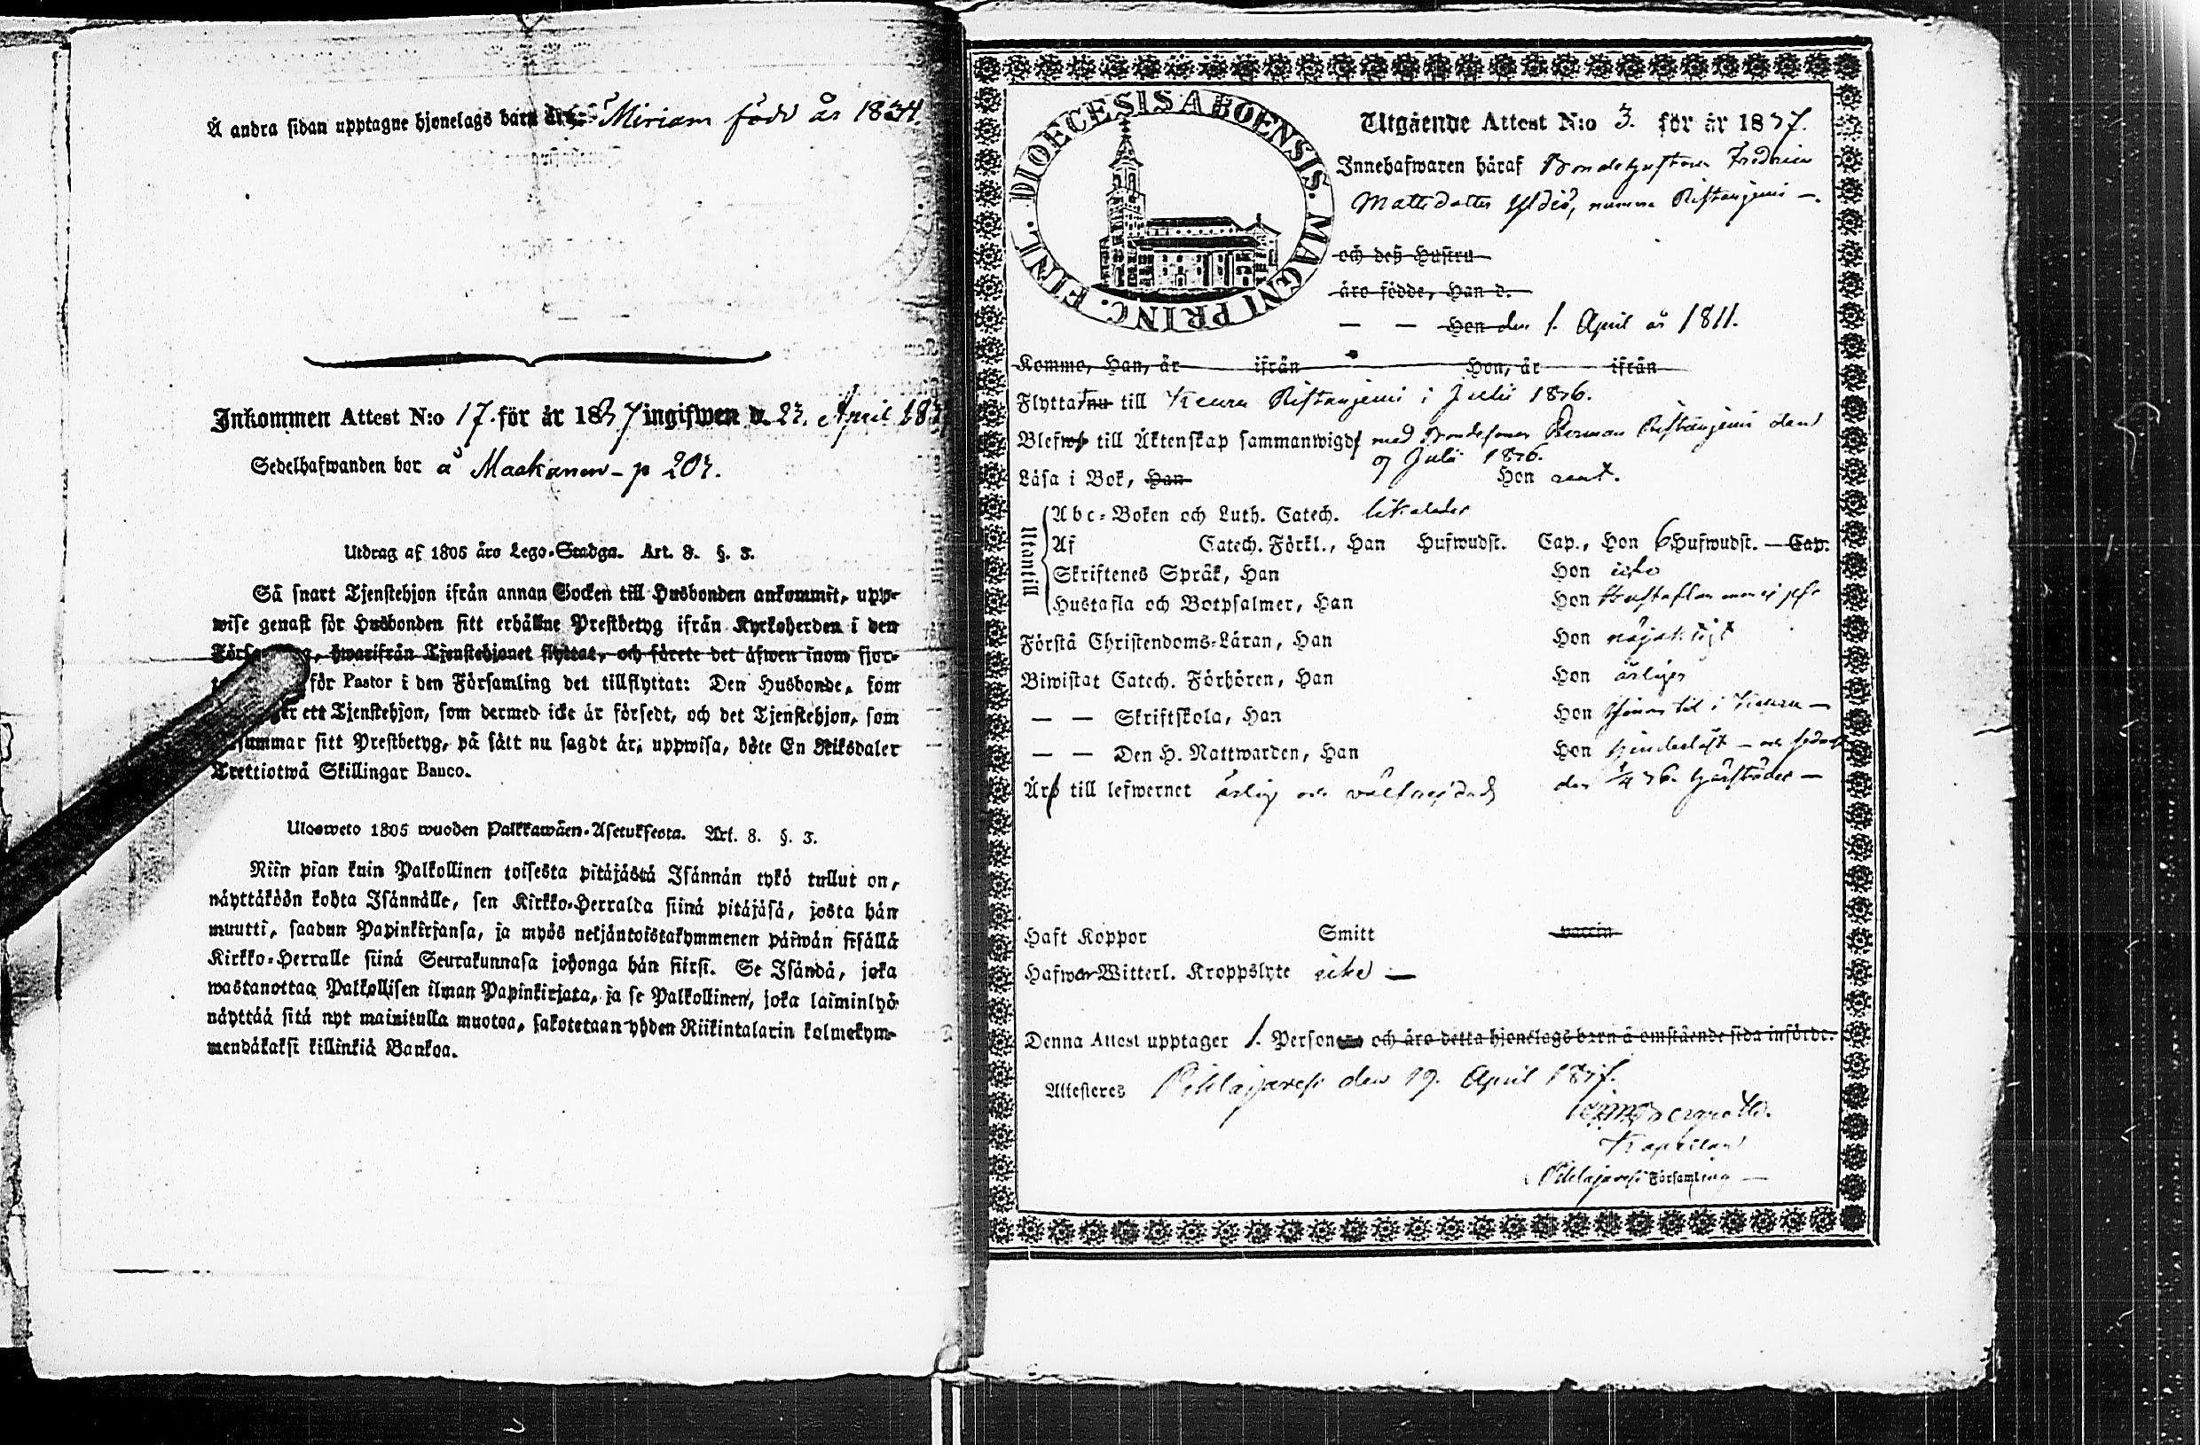 Å andra sidan upptagne hjonelags barn är: Miriam född år 1834.
Inkommen Attest N:o 17. för år 1837 ingifwen d. 23. April 183
Sedelhafwanden bor å Maakanen - p 203.
Utdrag af 1805 års Lego-Stadga. Art. 8. §. 3.
Så snart Tjenstehjon ifrån annan Socken till Husbonden ankommit, upp-
wise genast för Husbonden sitt erhållne Prestbetyg ifrån Kyrkoherden i den
hwarifrån Tjenstehjonet flyttat, och förete det äfwen inom fjor-
för Pastor i den Församling det tillflyttat: Den Husbonde, som
ett Tjenstehjon, som dermed icke är försedt, och det Tjenstehjon, som
summar sitt Prestbetyg, på sätt nu sagdt är, uppwisa, böte En Riksdaler
Trettiotwå Skillingar Banco.
Ulosweto 1805 wuoden Palkkawäen-Asetuksesta. Art. 8. §. 3.
Niin pian kuin Palkollinen toisesta pitäjästä Isännän tykö tullut on,
näyttäköön kohta Isännälle, sen Kirkko-Herralda siinä pitäjäsä, josta hän
muutti, saadun Papinkirjansa, ja myös neljäntoistakymmenen päiwän sisällä
Kirkko-Herralle siinä Seurakunnasa johonga hän siirsi. Se Isändä, joka
wastanottaa Palkollisen ilman Papinkirjata, ja se Palkollinen, joka laiminlyö
näyttää sitä nyt mainitulla muotoa, sakotetaan yhden Riikintalarin kolmekym-
mendäkaksi killinkiä Bankoa.
DIOECESIS ABOENSIS. MAGNI PRINC. FINL.
Utgående Attest N:o 3. för år 1837.
Innehafwaren häraf Bondehustrun
Mattsdotter Yldiö, numera Ristanjemi -.
och deß Hustru
äro födde, Han d.
— — Hon den 1. April år 1811.
Komme, Han, år ifrån Hon, år ifrån
Flyttat nu till Keuru Ristanjemi i Julii 1836.
Blefwo till Äktenskap sammanwigde med Bondesonen Herman Ristanjemi den
Julii 1836.
Läsa i Bok, Han Hon rent.
Utantill
Abc-Boken och Luth. Catech. likaledes
Af Catech. Förkl., Han Hufwudst. Cap., Hon 6 Hufwudst. — Cap.
Skriftenes Språk, Han Hon icke
Hustafla och Botpsalmer, Han Hon Hustaflan men ej ps.
Förstå Christendoms-Läran, Han Hon nöjaktigt
Biwistat Catech. Förhören, Han Hon årligen
— — Skriftskola, Han Hon
— — Den H. Nattwarden, Han Hon
Äro till lefwernet ärlig och wälfrejdad
Haft Koppor Smitt vaccin
Hafwa Witterl. Kroppslyte icke —
Denna Attest upptager 1. Person och äro detta hjonelags barn å omstående sida införde.
Attesteres Pihlajavesi den 19. April 1837.
Kapellan
Pihlajavesi Församling —